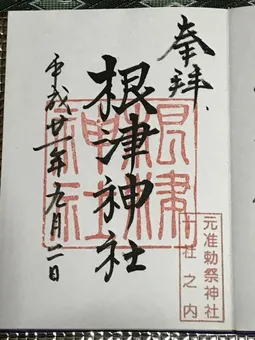 奉拝
根津神社
平成廿一年九月二日
根津
神社
元准勅祭神社
十社之内